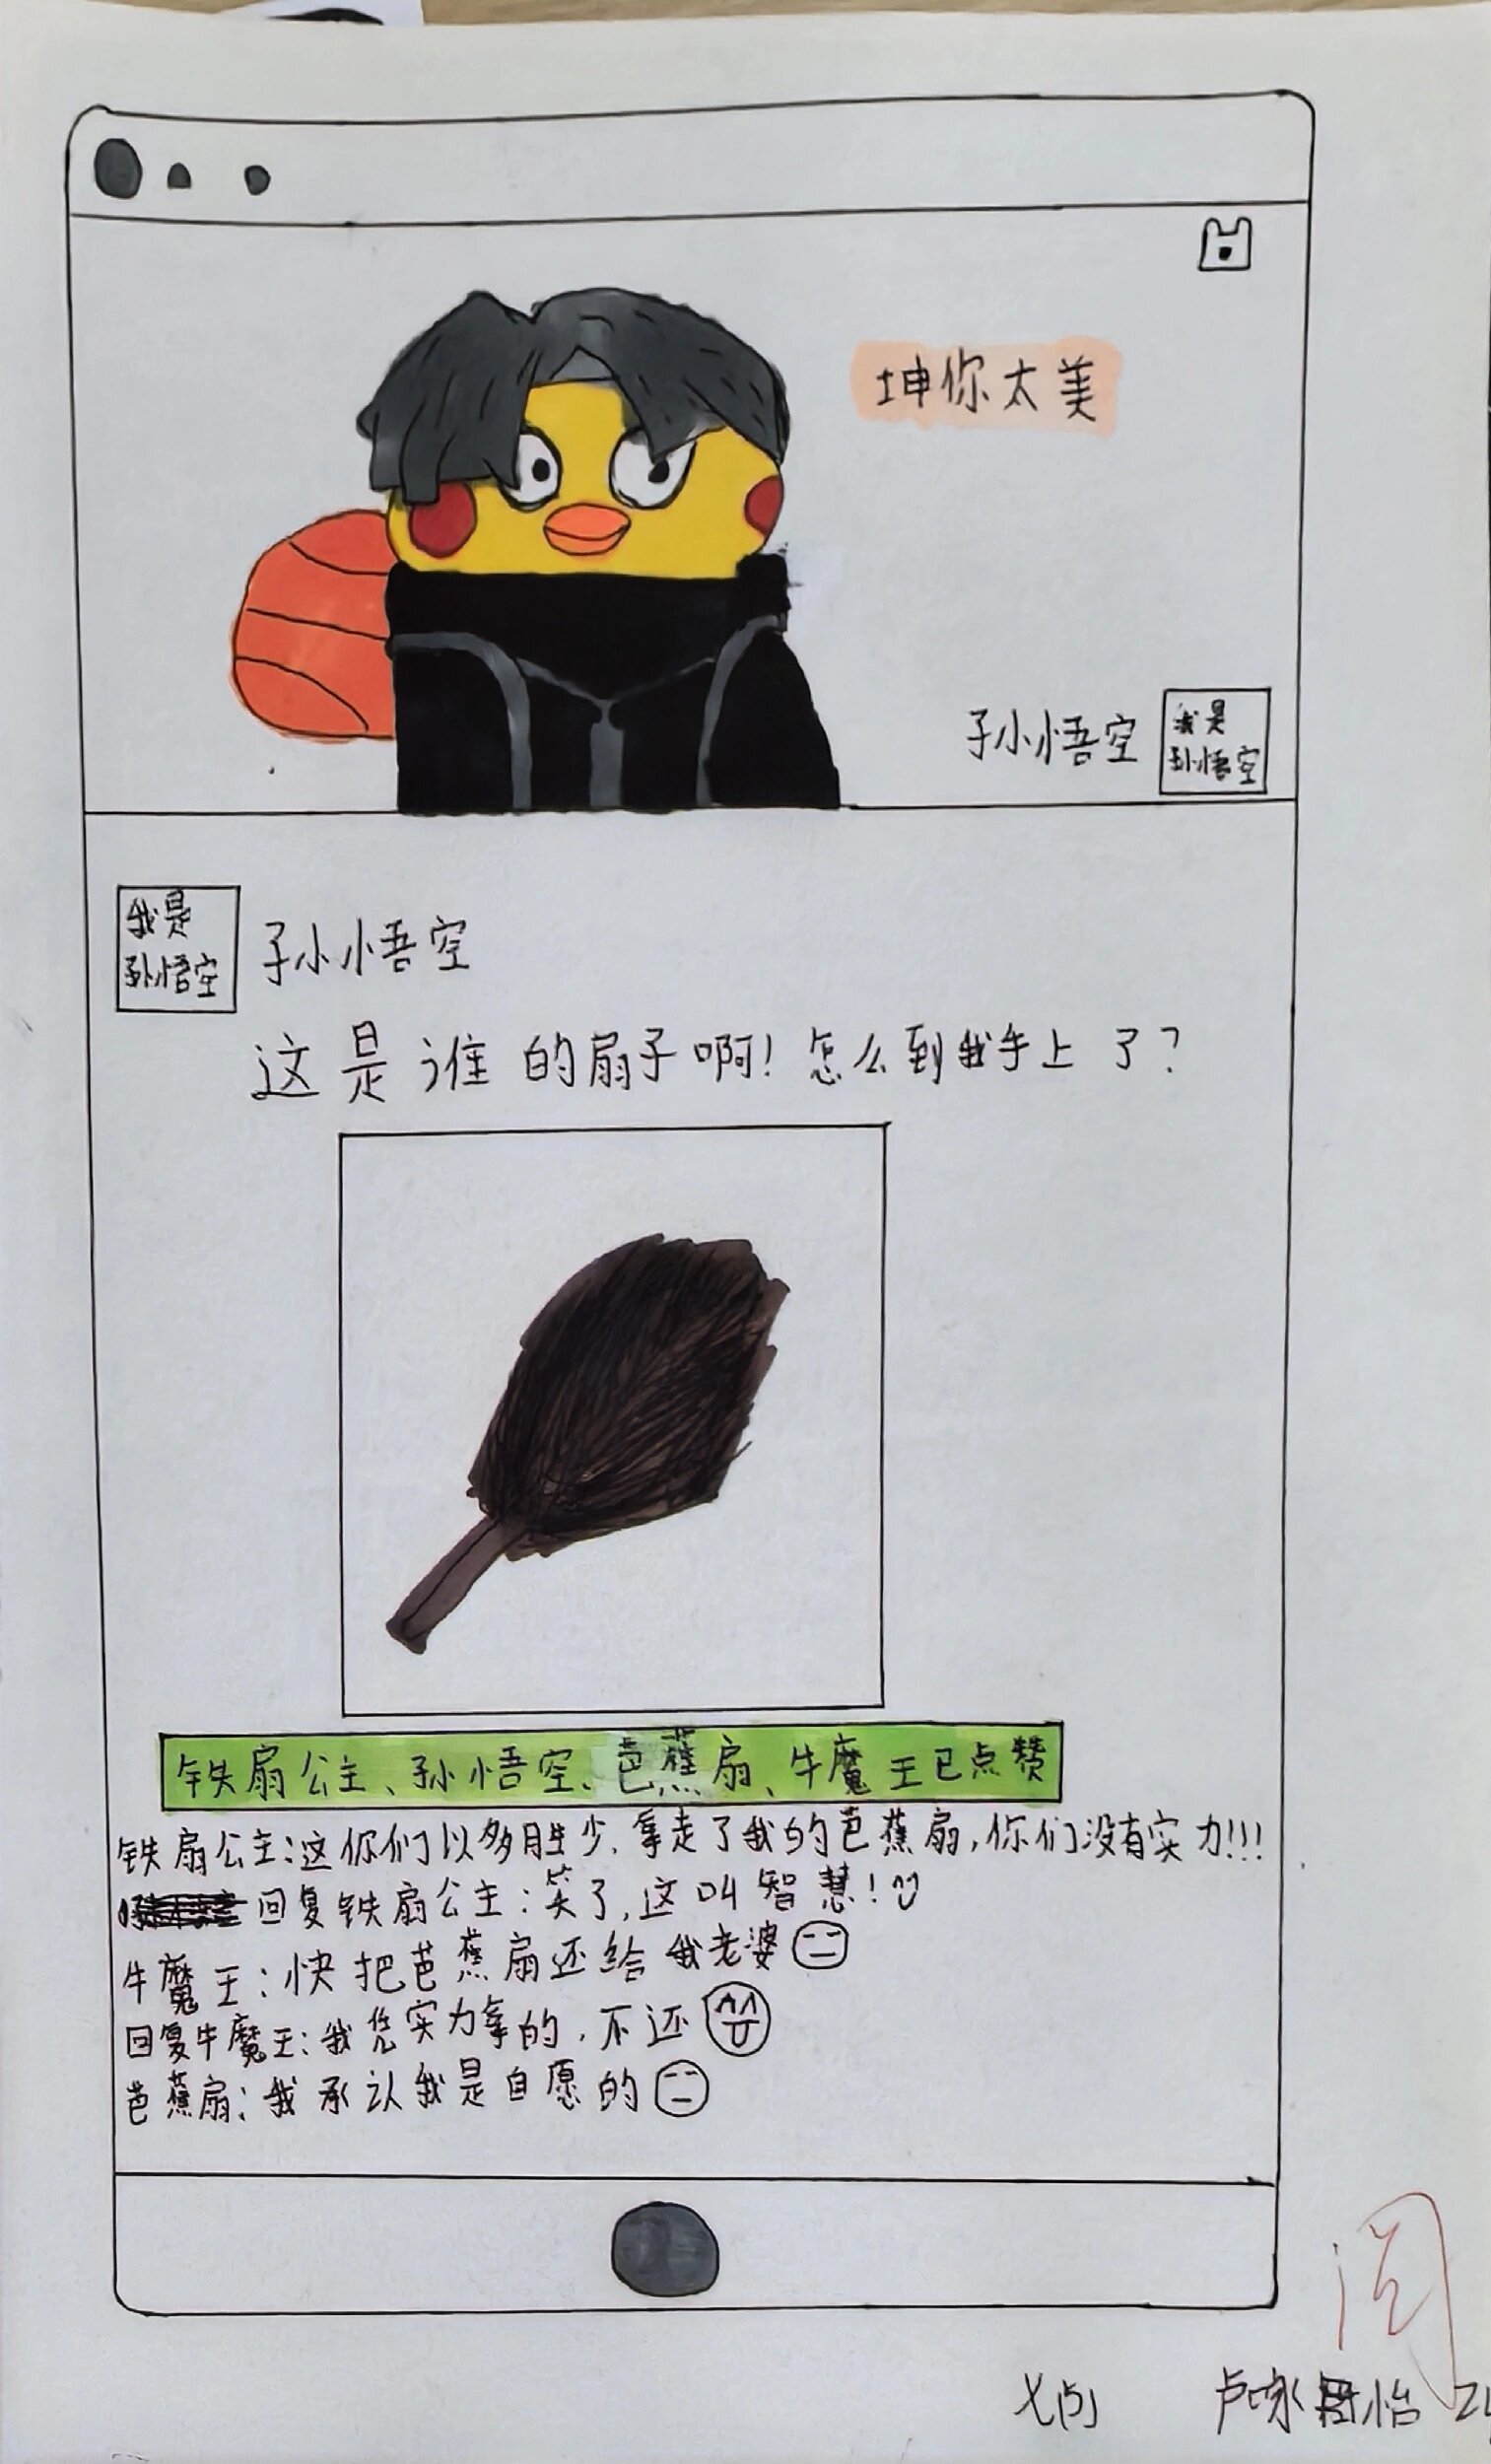 坤你太美
孙小悟空
我是
孙悟空
我是
孙悟空
孙小悟空
这是谁的扇子啊!怎么到我手上了?
铁扇公主、孙悟空、芭蕉扇、牛魔王已点赞
铁扇公主:这你们以多胜少,拿走了我的芭蕉扇,你们没有实力!!!
回复铁扇公主:笑了,这叫智慧!
牛魔王:快把芭蕉扇还给我老婆
回复牛魔王:我凭实力拿的,不还
芭蕉扇:我承认我是自愿的
阅